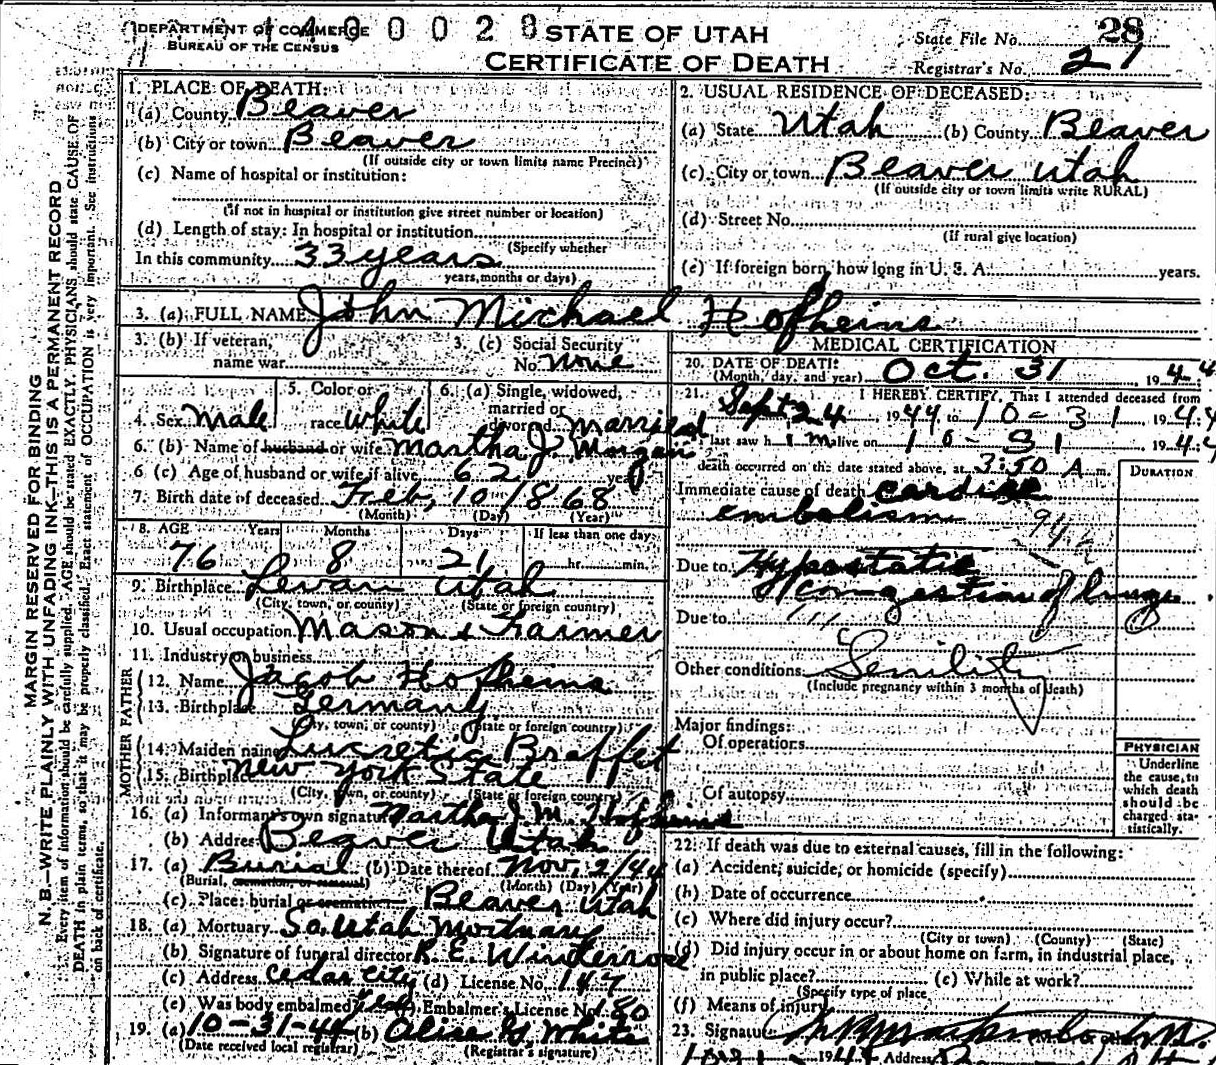 DEPARTMENT OF COMMERCE
BUREAU OF THE CENSUS
STATE OF UTAH
CERTIFICATE OF DEATH
State File No. 28
Registrar's No. 21
MARGIN RESERVED FOR BINDING
N. B.—WRITE PLAINLY WITH UNFADING INK—THIS IS A PERMANENT RECORD
Every item of information should be carefully supplied. AGE should be stated EXACTLY. PHYSICIANS should state CAUSE OF
DEATH in plain terms, so that it may be properly classified. Exact statement of OCCUPATION is very important. See instructions
on back of certificate.
1. PLACE OF DEATH:
(a) County Beaver
(b) City or town Beaver
(If outside city or town limits name Precinct)
(c) Name of hospital or institution:
(If not in hospital or institution give street number or location)
(d) Length of stay: In hospital or institution
(Specify whether
In this community 33 years
years, months or days)
2. USUAL RESIDENCE OF DECEASED:
(a) State Utah (b) County Beaver
(c) City or town Beaver Utah
(If outside city or town limits write RURAL)
(d) Street No.
(If rural give location)
(e) If foreign born, how long in U. S. A. years.
3. (a) FULL NAME John Michael Hofheins
3. (b) If veteran, name war
3. (c) Social Security No. None
4. Sex Male
5. Color or race White
6. (a) Single, widowed, married or divorced Married
6. (b) Name of husband or wife Martha J. Morgan
6 (c) Age of husband or wife if alive 62 years
7. Birth date of deceased Feb, 10, 1868
(Month) (Day) (Year)
8. AGE Years Months Days If less than one day
76 8 21 hr. min.
9. Birthplace Levan Utah
(City, town, or county) (State or foreign country)
10. Usual occupation Mason & Farmer
11. Industry business
FATHER
12. Name Jacob Hofheins
13. Birthplace Germany
(City, town, or county) (State or foreign country)
MOTHER
14. Maiden name Lucretia Braffet
15. Birthplace New York State
(City, town, or county) (State or foreign country)
16. (a) Informant's own signature Martha J. M. Hofheins
(b) Address Beaver Utah
17. (a) Burial (b) Date thereof Nov, 2/44
(Burial, cremation, or removal) (Month) (Day) (Year)
(c) Place: burial or cremation Beaver Utah
18. (a) Mortuary So. Utah Mortuary
(b) Signature of funeral director R. E. Winterrose
(c) Address Cedar City (d) License No. 147
(e) Was body embalmed? yes Embalmer's License No. 180
19. (a) 10-31-44 (b) Alise G. White
(Date received local registrar) (Registrar's signature)
MEDICAL CERTIFICATION
20. DATE OF DEATH:
(Month, day, and year) Oct. 31, 1944
21. I HEREBY CERTIFY, That I attended deceased from
Sept 24 1944 to 10-31, 1944
last saw him alive on 10-31 1944
death occurred on the date stated above, at 3:50 A.m.
DURATION
Immediate cause of death cardiac
embolism
Due to Hypostatic
Congestion of lungs
Due to
Other conditions Senility
(Include pregnancy within 3 months of death)
Major findings:
Of operations
Of autopsy
PHYSICIAN
Underline
the cause to
which death
should be
charged sta-
tistically.
22. If death was due to external causes, fill in the following:
(a) Accident, suicide, or homicide (specify)
(b) Date of occurrence
(c) Where did injury occur?
(City or town) (County) (State)
(d) Did injury occur in or about home on farm, in industrial place,
in public place? (e) While at work?
(Specify type of place
(f) Means of injury
23. Signature
Address